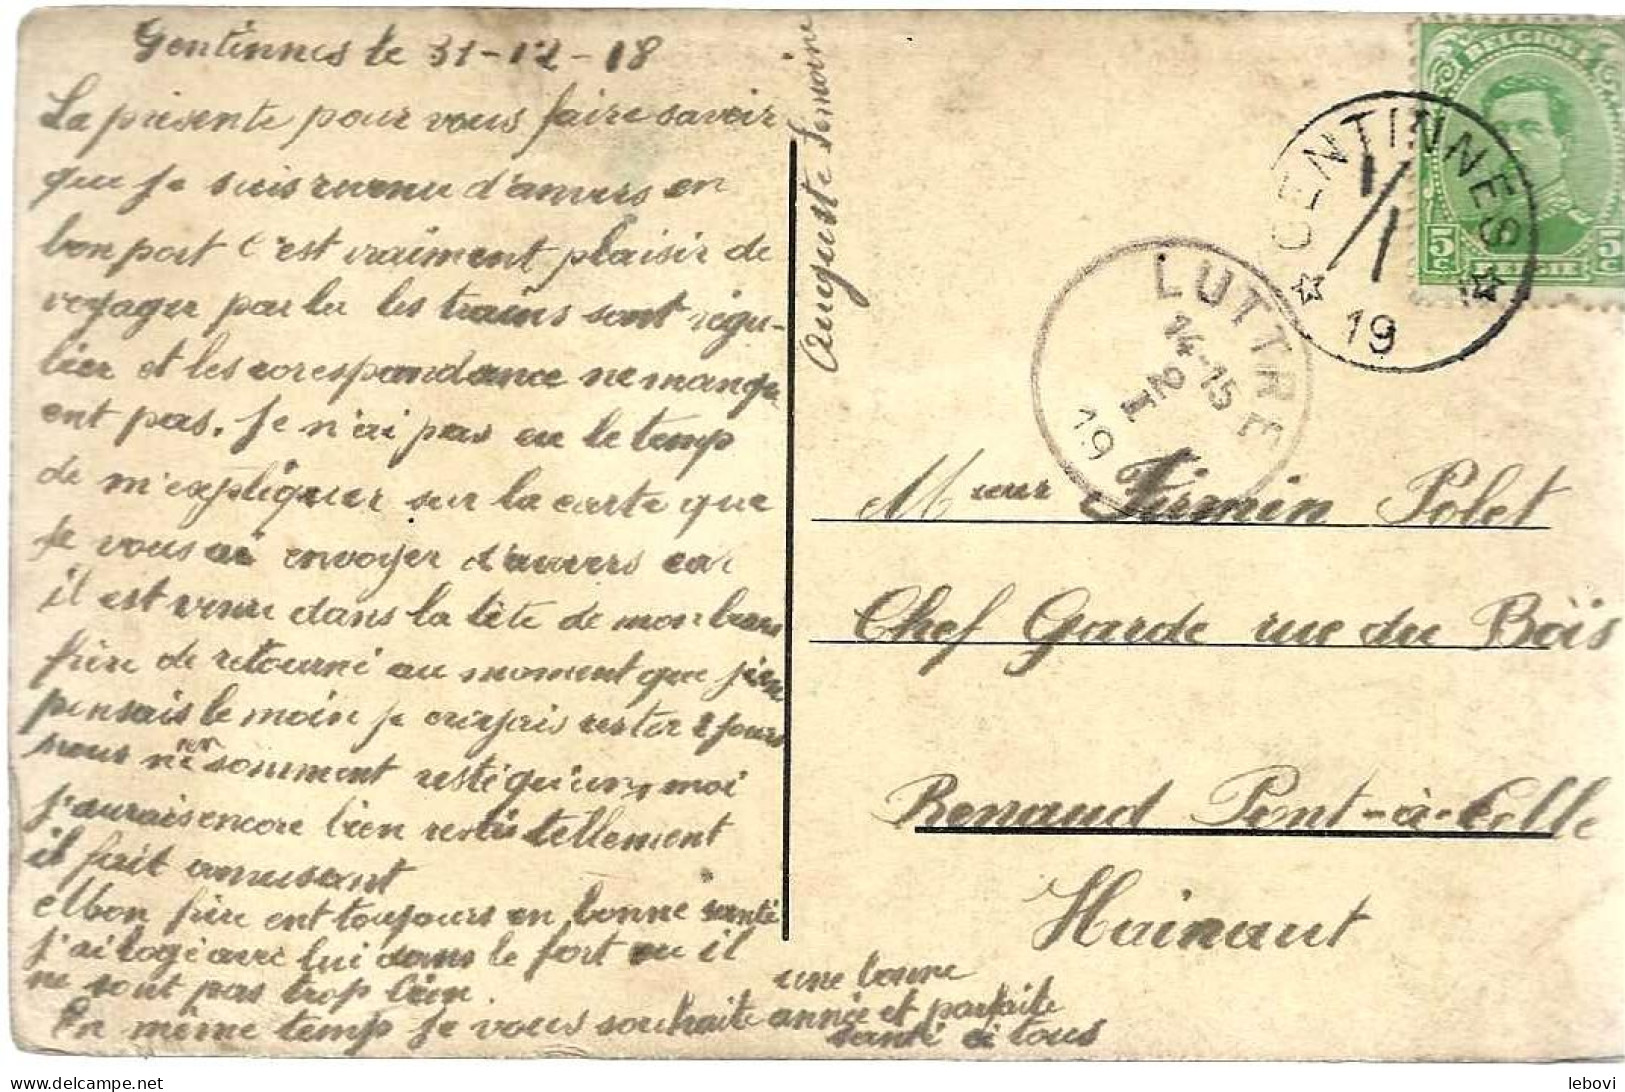 Gentinnes le 31-12-18
La présente pour vous faire savoir
que je suis revenu d'anvers en
bon port C'est vraiment plaisir de
voyager par la les trains sont régu-
lier et les corespondance ne manqu
ent pas. Je n'ai pas eu le temp
de m'expliquer sur la carte que
je vous ai envoyer d'anvers car
il est venu dans la tête de mon beau
frère de retourné au moment que j'en
pensais le moin je croiyais rester 8 jours
nous ne sommment resté qu'un, moi
j'aurais encore bien restés tellement
il fait amusant
Mon frère ent toujours en bonne santé
j'ai logé avec lui dans le fort ou il
ne sont pas trop bien.
En même temp je vous souhaite une bonne
année et parfaite
santé à tous
Auguste Lemoine
BELGIQUE
5c BELGIE 5c
GENTINNES
1/1
19
LUTTRE
14-15
2
I
19
Mr Firmin Polet
Chef Garde rue du Bois
Renaud Pont-à-Celle
Hainaut
© lebovi
delcampe.net